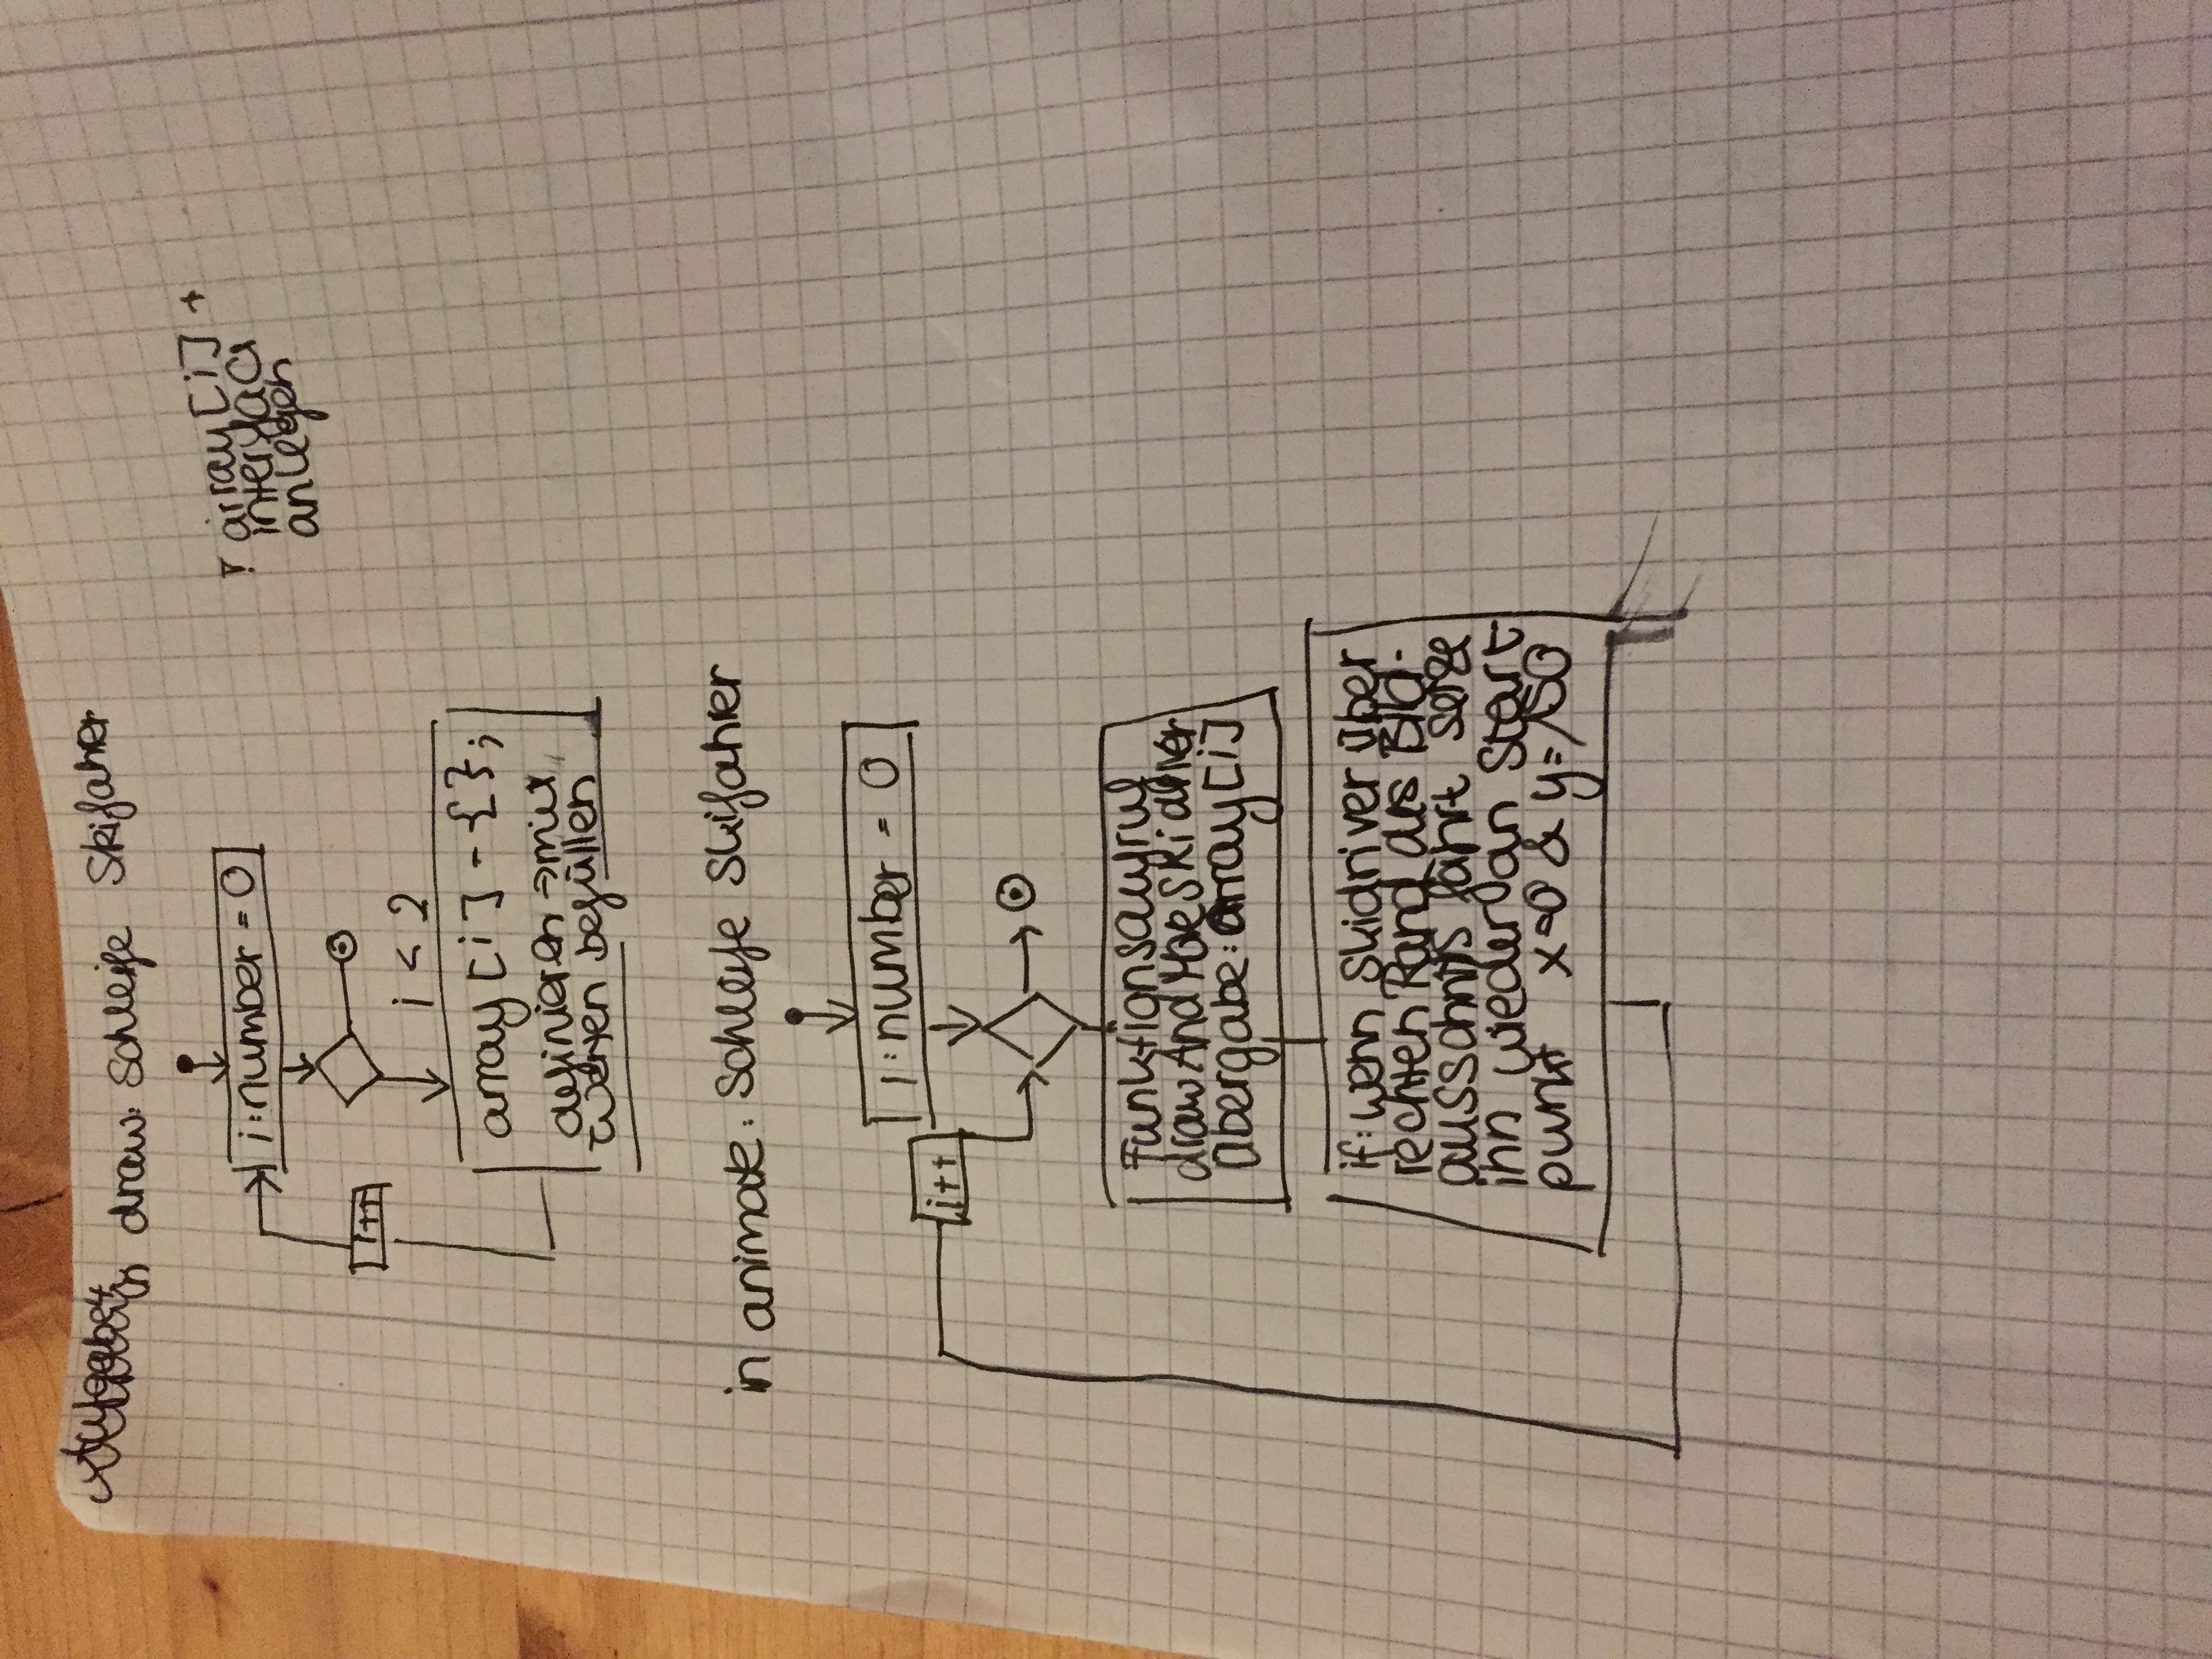 in draw: Schleife Skifahrer
! array[i] +
interface
anlegen
i:number = 0
i++
i < 2
array[i] = {};
definieren => mit
Werten befüllen
in animate: Schleife Skifahrer
i:number = 0
i++
Funktionsaufruf
drawAndMoveSkidriver
Übergabe: array[i]
if: wenn Skidriver über
rechten Rand des Bild-
ausschnitts fährt setze
ihn wieder an Start
punkt x=0 & y=150